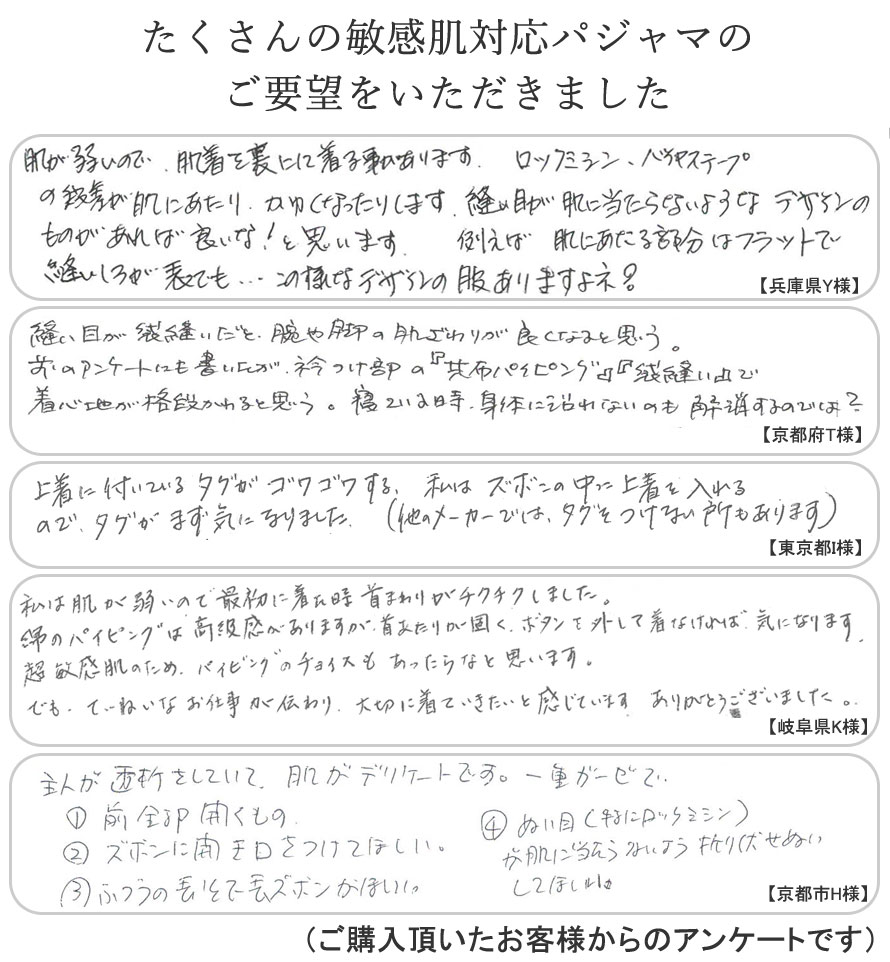 たくさんの敏感肌対応パジャマの
ご要望をいただきました
肌が弱いので、肌着を裏にして着る事があります。 ロックミシン、バイヤステープ
の段差が肌にあたり、かゆくなったりします。縫い目が肌に当たらないようなデザインの
ものがあれば良いな!と思います。 例えば 肌にあたる部分はフラットで
縫いしろが表でも…この様なデザインの服ありますよネ?
【兵庫県Y様】
縫い目が袋縫いだと、腕や脚の肌ざわりが良くなると思う。
前のアンケートにも書いたが、衿つけ部の『共布パイピング』『袋縫い』で
着心地が格段かわると思う。寝ている時、身体に沿れないのも解消するのでは?
【京都府T様】
上着に付いているタグがゴワゴワする、 私はズボンの中に上着を入れる
ので、タグがまず気になりました。(他のメーカーでは、タグをつけない所もあります)
【東京都I様】
私は肌が弱いので最初に着た時首まわりがチクチクしました。
綿のパイピングは高級感がありますが、首あたりが固く、ボタンを外して着なければ気になります。
超敏感肌のため、パイピングのチョイスもあったらなと思います。
でも、ていねいなお仕事が伝わり、大切に着ていきたいと感じています ありがとうございました。
【岐阜県K様】
主人が透析をしていて、肌がデリケートです。一重ガーゼで、
① 前全部開くもの
② ズボンに開き口をつけてほしい。
③ ふつうの長そで長ズボンがほしい。
④ ぬい目(特にロックミシン)
が肌に当たらないよう折り伏せぬい
してほしい
【京都市H様】
(ご購入頂いたお客様からのアンケートです)